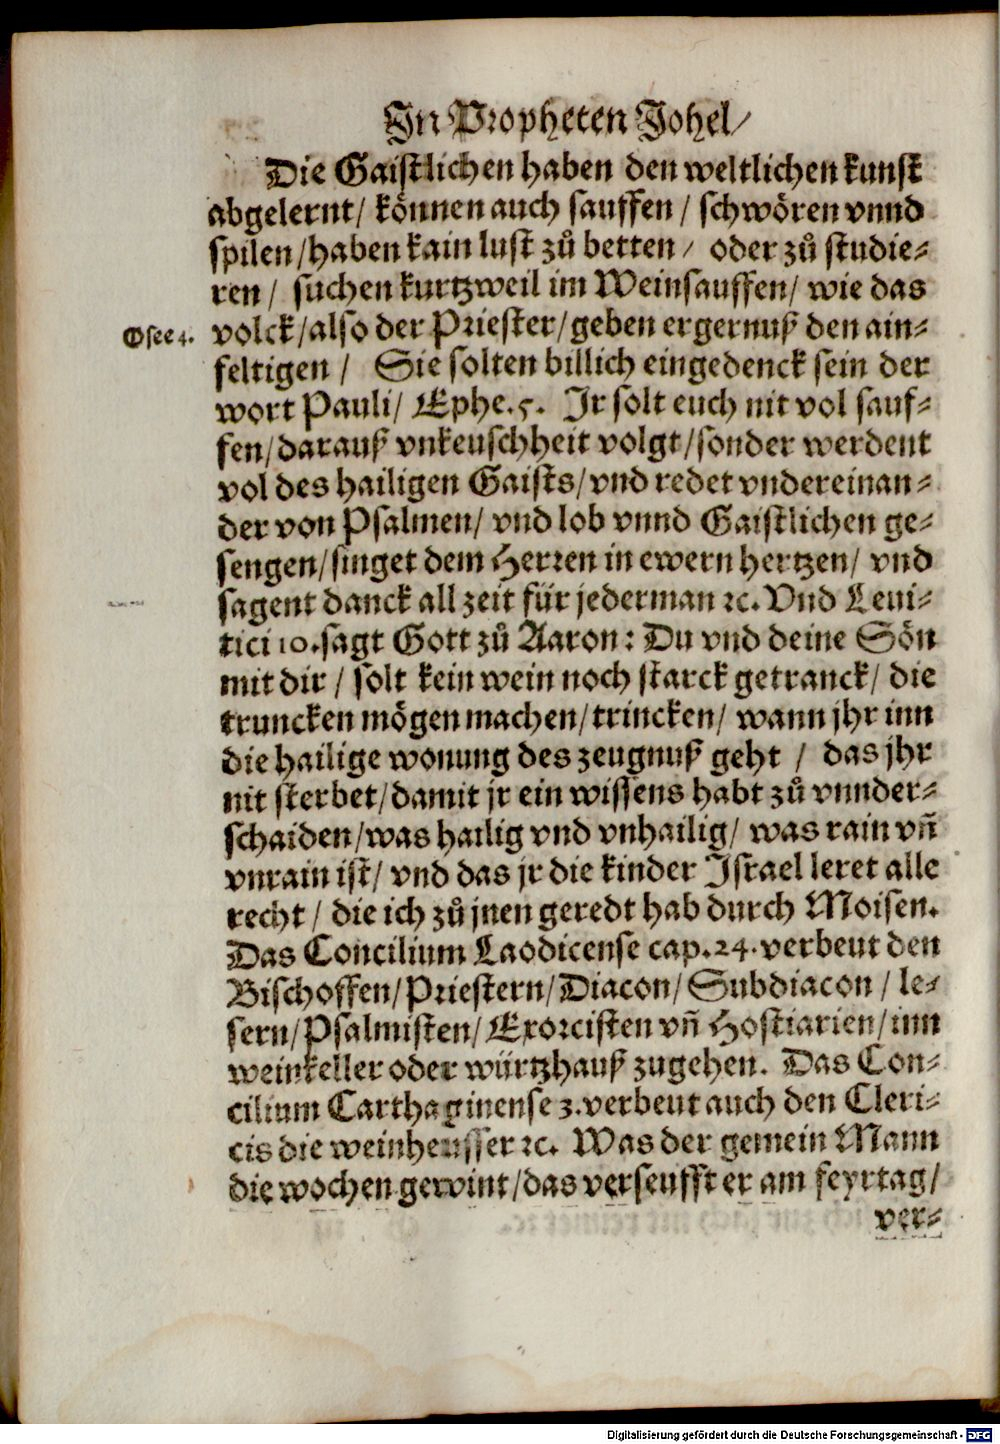 In Propheten Johel/
Die Gaistlichen haben den weltlichen kunst
abgelernt/ können auch sauffen/ schwören vnnd
spilen/haben kain lust zů betten/ oder zů studie-
ren/ suchen kurtzweil im Weinsauffen/ wie das
Osee 4. volck/also der Priester/geben ergernuß den ain-
feltigen/ Sie solten billich eingedenck sein der
wort Pauli/ Ephe.5. Jr solt euch nit vol sauf-
fen/darauß vnkeuschheit volgt/sonder werdent
vol des hailigen Gaists/vnd redet vndereinan-
der von Psalmen/ vnd lob vnnd Gaistlichen ge-
sengen/singet dem Herren in ewern hertzen/ vnd
sagent danck all zeit für jederman ꝛc. Vnd Leui-
tici 10.sagt Gott zů Aaron: Du vnd deine Sön
mit dir/ solt kein wein noch starck getranck/ die
truncken mögen machen/trincken/ wann jhr inn
die hailige wonung des zeugnuß geht/ das jhr
nit sterbet/damit jr ein wissens habt zů vnnder-
schaiden/was hailig vnd vnhailig/ was rain vñ
vnrain ist/ vnd das jr die kinder Israel leret alle
recht/ die ich zů jnen geredt hab durch Moisen.
Das Concilium Laodicense cap.24.verbeut den
Bischoffen/Priestern/Diacon/Subdiacon/ le-
sern/Psalmisten/Exorcisten vñ Hostiarien/inn
weinkeller oder würtzhauß zugehen. Das Con-
cilium Carthaginense 3.verbeut auch den Cleri-
cis die weinheusser ꝛc. Was der gemein Mann
die wochen gewint/das verseufft er am feyrtag/
ver-
Digitalisierung gefördert durch die Deutsche Forschungsgemeinschaft - DFG